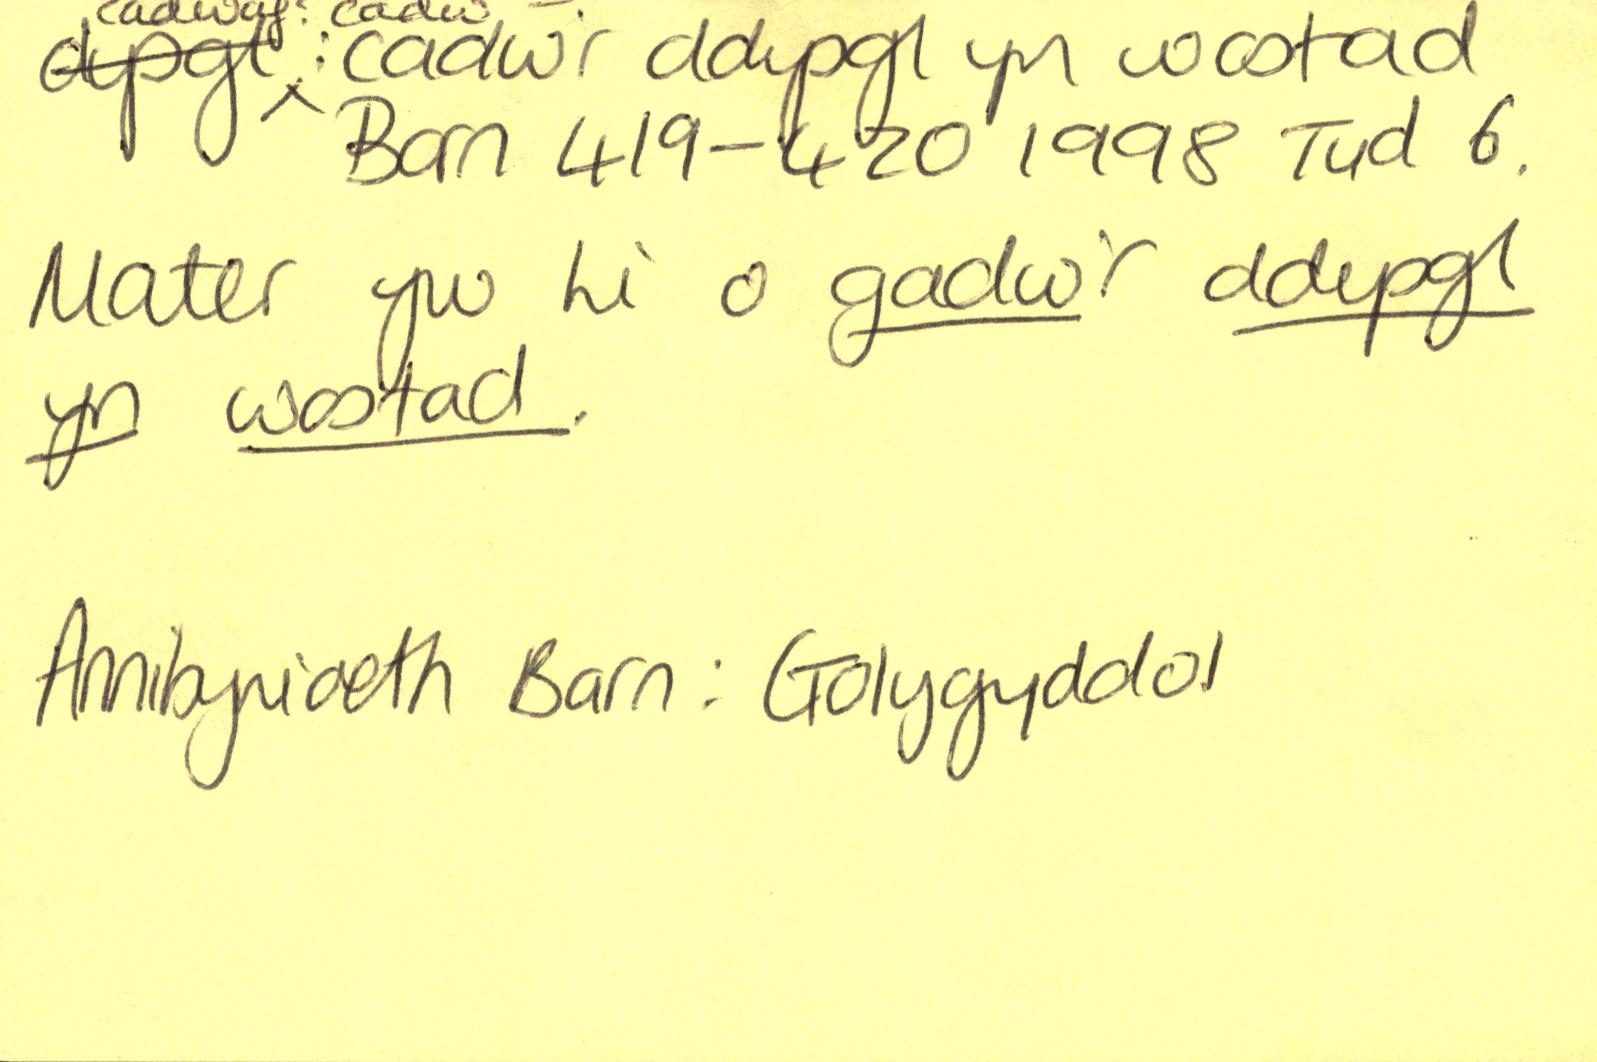 cadwaf: cadw –.
dypgl : cadw'r ddypgl yn wastad
Barn 419-420 1998 Tud 6.
Mater yw hi o gadw'r ddypgl
yn wastad.
Annibyniaeth Barn: Golygyddol